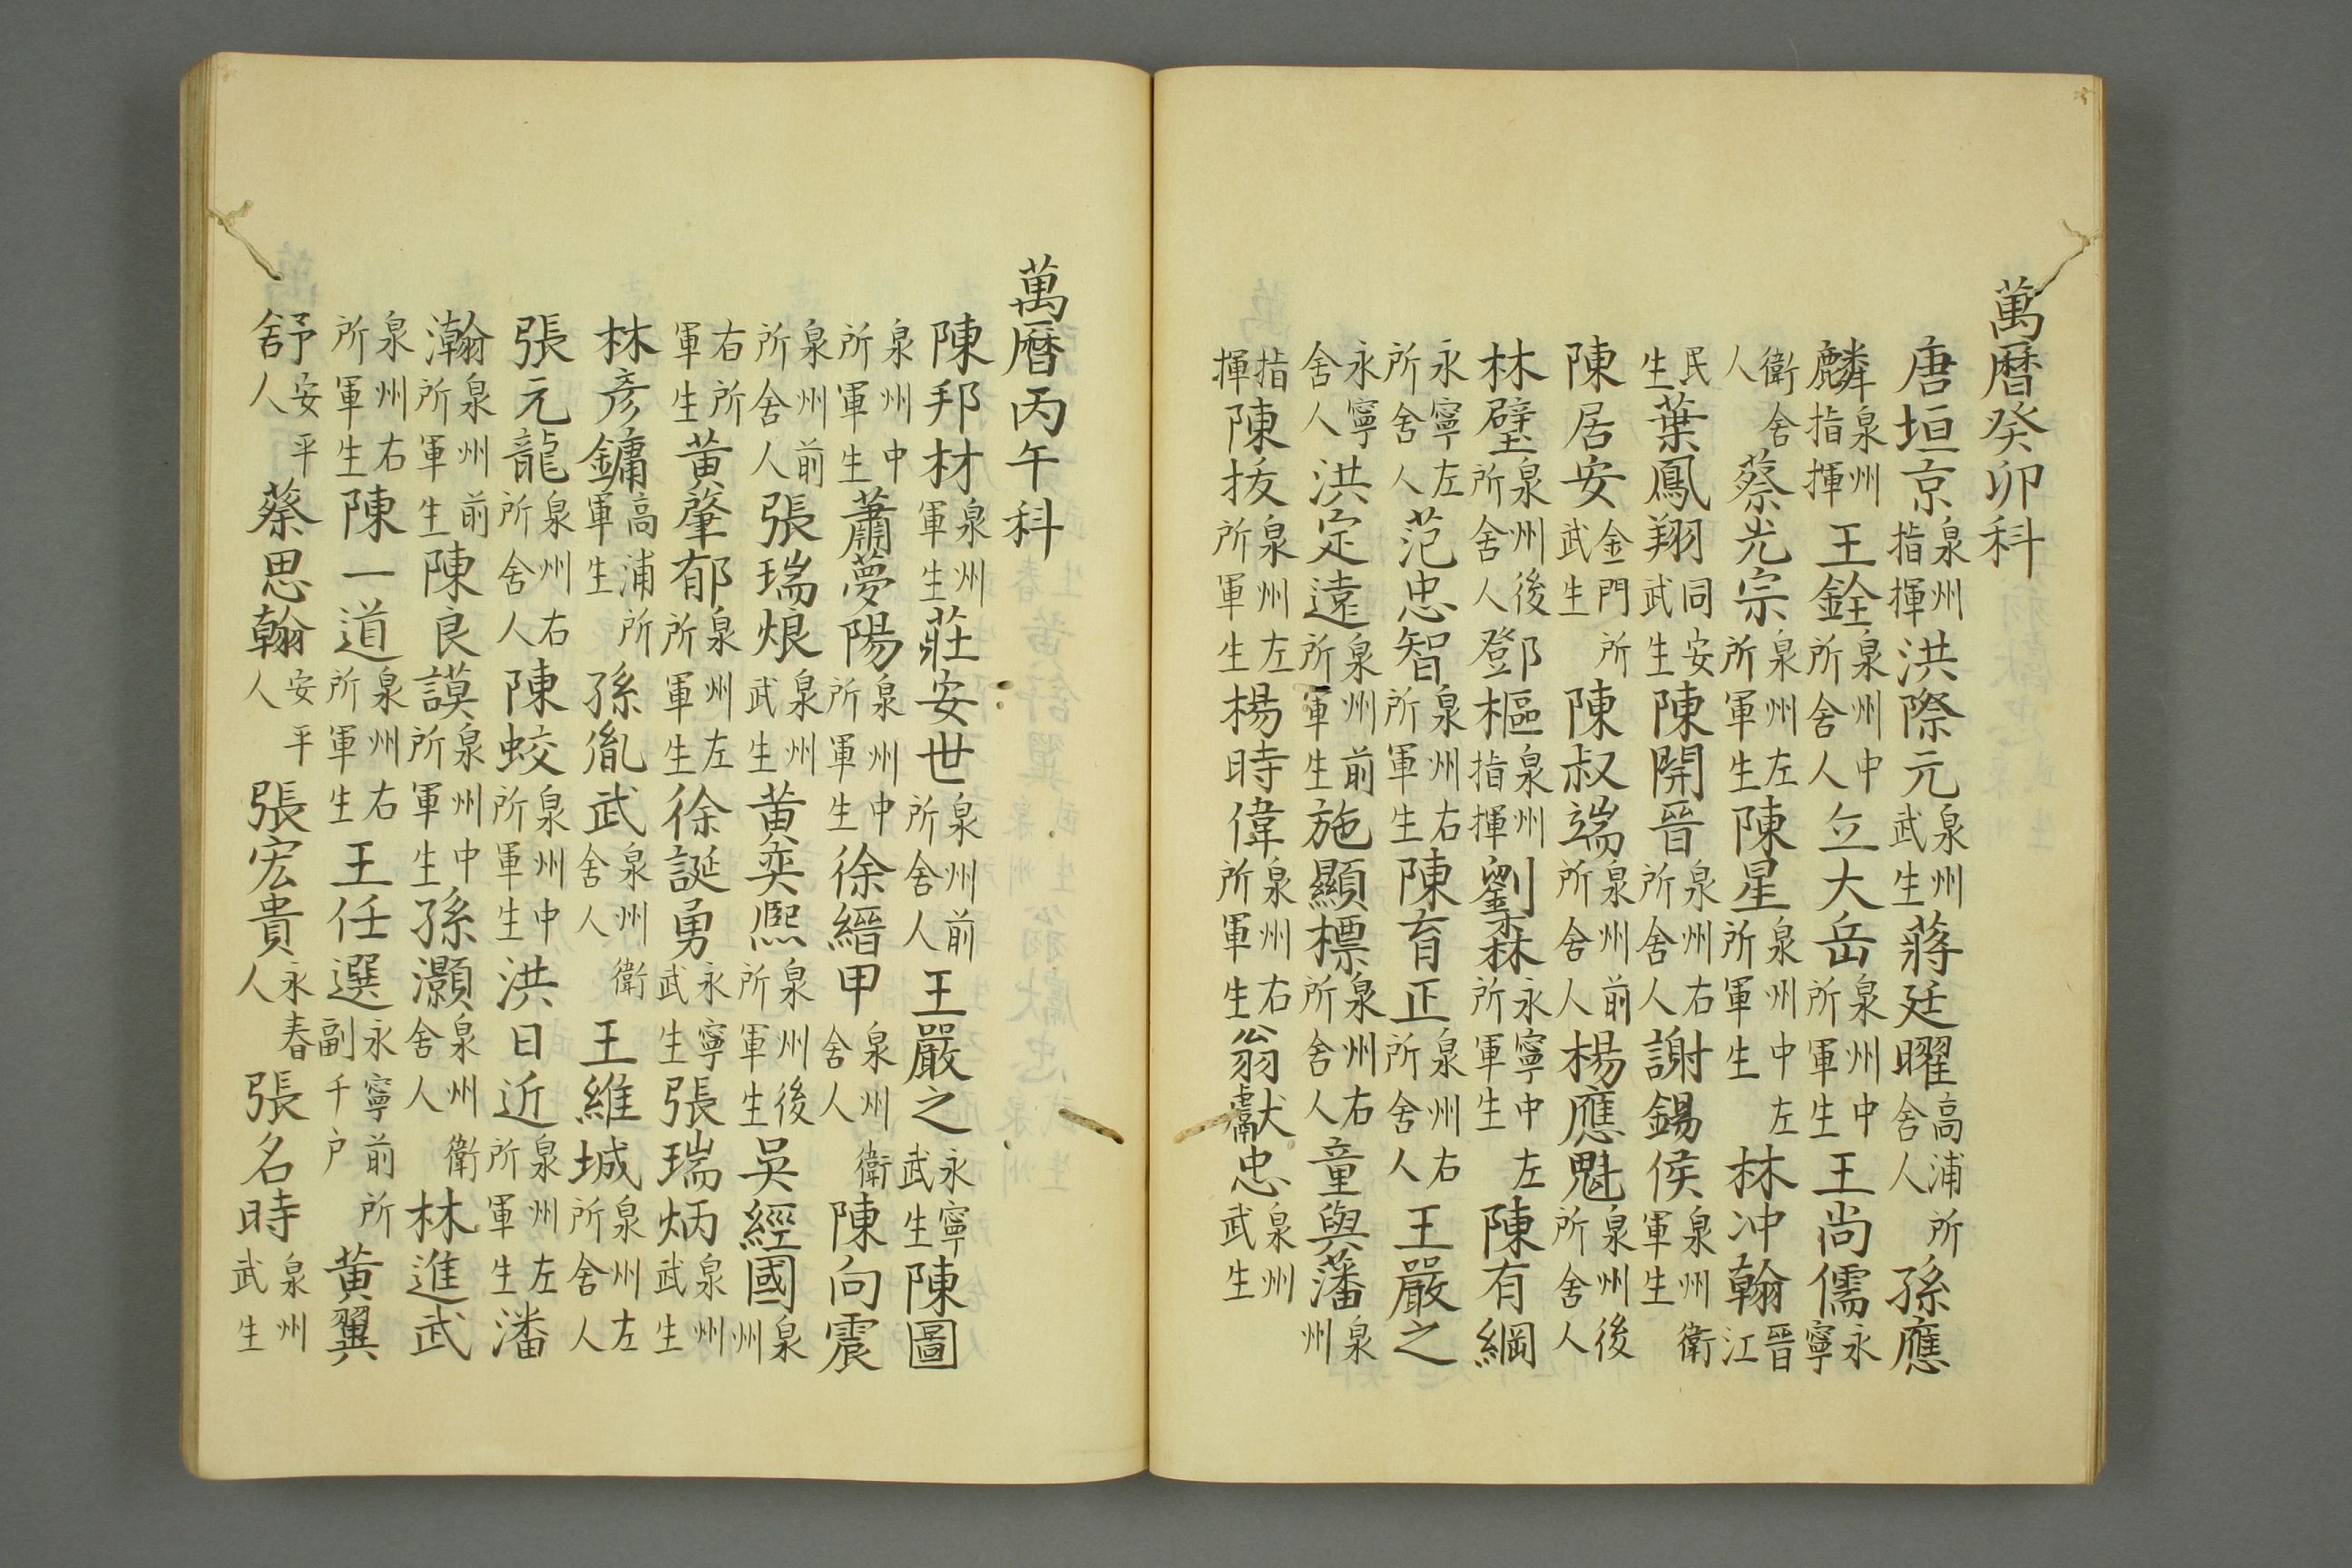 萬曆癸卯科
唐垣京泉州指揮洪際元泉州武生蔣廷曜高浦所舍人孫應
麟泉州指揮王銓泉州中所舍人立大岳泉州中所軍生王尚儒永寧
衛舍人蔡光宗泉州左所軍生陳星泉州中左所軍生林冲翰晉江
民生葉鳳翔同安武生陳開晉泉州右所舍人謝錫侯泉州衛軍生
陳居安金門所武生陳叔端泉州前所舍人楊應魁泉州後所舍人
林璧泉州後所舍人鄧樞泉州指揮劉霖永寧中左所軍生陳有綱
永寧左所舍人范忠智泉州右所軍生陳育正泉州右所舍人王嚴之
永寧舍人洪定遠泉州前所軍生施顯標泉州右所舍人童與藩泉州
指揮陳拔泉州左所軍生楊時偉泉州右所軍生翁獻忠泉州武生
萬曆丙午科
陳邦材泉州軍生莊安世泉州前所舍人王嚴之永寧武生陳圖
泉州中所軍生蕭夢陽泉州中所軍生徐縉甲泉州衛舍人陳向震
泉州前所舍人張瑞烺泉州武生黃奕熙泉州後所軍生吳經國泉州
右所軍生黃肇郁泉州左所軍生徐誕勇永寧武生張瑞炳泉州武生
林彥鏞高浦所軍生孫胤武泉州衛舍人王維城泉州左所舍人
張元龍泉州右所舍人陳蛟泉州中所軍生洪日近泉州左所軍生潘
瀚泉州前所軍生陳良謨泉州中所軍生孫灝泉州衛舍人林進武
泉州右所軍生陳一道泉州右所軍生王任選永寧前所副千户黃翼
舒安平人蔡思翰安平人張宏貴永春人張名時泉州武生